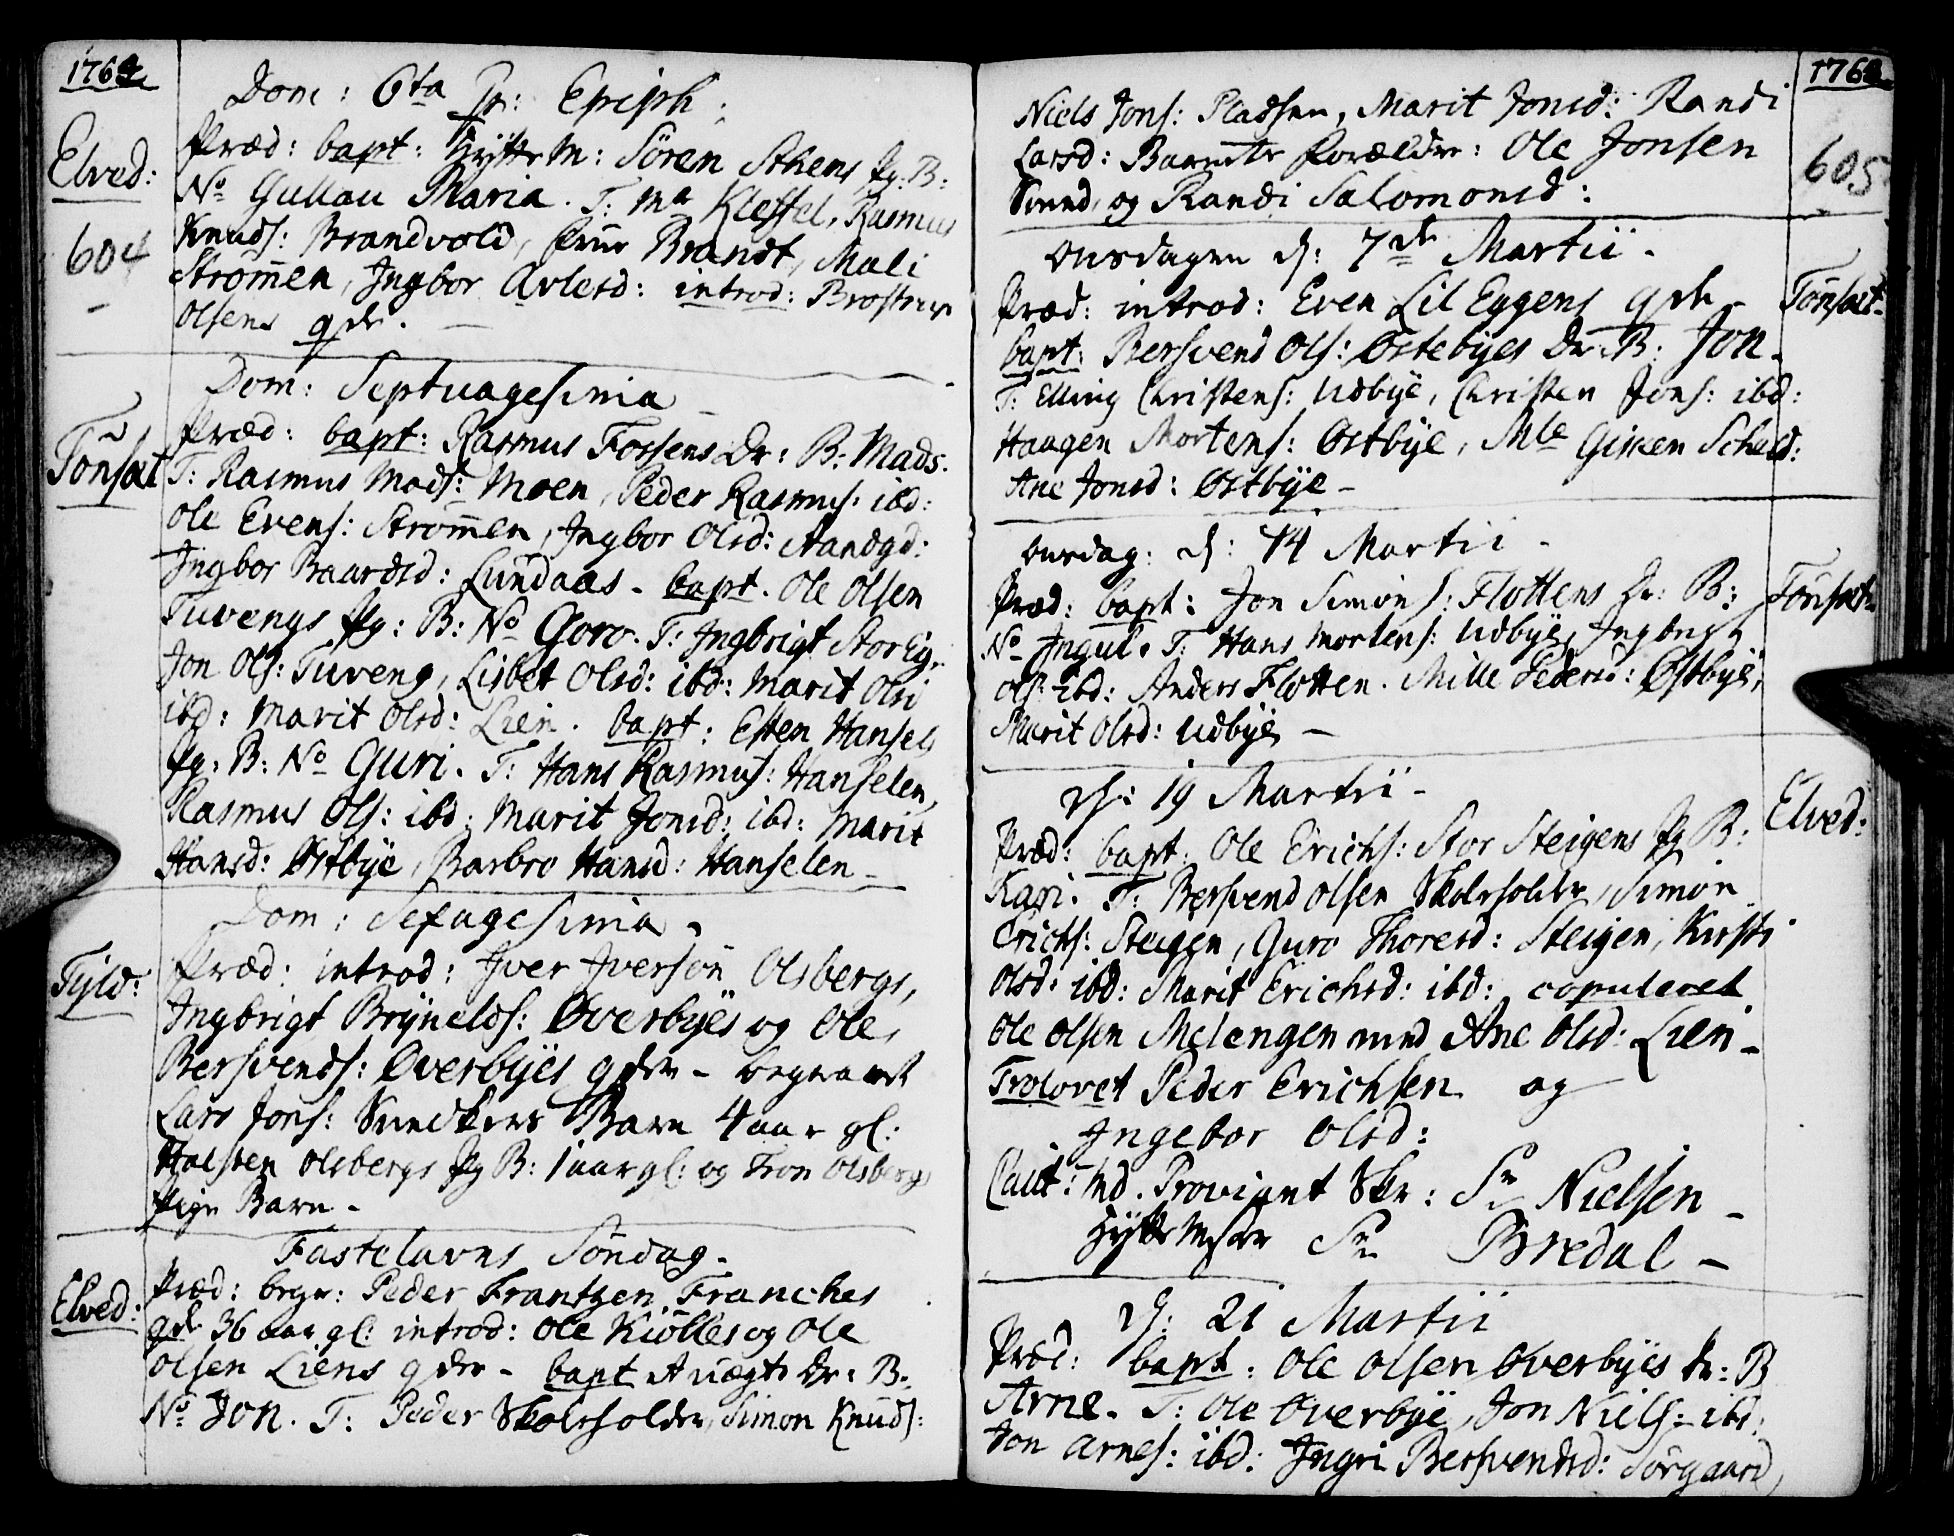 1764
Dom: 6ta p: Epiph:
Elved:
Præd: bapt: Hÿtte M: Sören Sthens pg: B:
No Gullau Maria. T: Ma Kleffel, Rasmus
604
Knuds: Brandvold, frue Brandt, Mali
Strom̄en, Ingbor Avlesd: introd: Brostrup
Olsens qde. —
Dom: Septuagesima
Tönset
Præd: bapt: Rasmus Fossens Dr: B: Mads.
T: Rasmus Mads: Moen, Peder Rasmus: ibd:
Ole Evens: Strom̄en, Ingbor Olsd: Aandgd:
Ingbor Baardsd: Lundaas. bapt. Ole Olsen
Tuvengs pg: B: No Goro. T: Ingbrigt StorEg.
Jon Ols: Tuveng, Lisbet Olsd: ibd: Marit Olsd
ibd: Marit Olsd: Lien. bapt: Esten Hansels
pg. B: No Guri. T: Hans Rasmus: Hanselen,
Rasmus Ols: ibd: Marit Jonsd: ibd: Marit
Hansd: Østbÿe, Barbro Hansd: Hanselen —
Dom: Sexagesima.
Tyld:
Præd: introd: Iver Iversön Olsbergs,
Ingbrigt Brÿnelds: Øverbÿes og Ole
Bersvends: Øverbÿes qder — begravet
Lars Jons: Barn 4 aar gl:
Halsten Olsbergs pg B: 1 aar gl: og Tron Olsbergs
pige Barn —
Fastelavns Söndag.
Elved:
Præd: begr: Peder Frantzen Franches
qde 36 aar gl: introd: Ole Kiölles og Ole
Olsen Liens qder — bapt Auægte Dr: B.
No Jon. T: Peder Skoleholder, Simon Knuds:
Niels Jons: Pladsen, Marit Jonsd: Randi
Larsd: Barnets forældre: Ole Jonsen
605
og Randi Salomonsd:
Onsdagen d: 7de Martii.
Præd: introd: Even Lil Eggens qde
Tönset
bapt: Bersvend Ols: Østebÿes Dr: B: Jon.
T: Elling Christens: Udbÿe, Christen Jons: ibd:
Haagen Mortens: Østbÿe, Mle Gisken Scheld:
Ane Jonsd: Østbÿe —
Onsdag: d: 14 Martii —
Præd: bapt: Jon Simons: Flottens Dr: B:
Tönset
No Ingul. T: Hans Mortens: Udbÿe, Ingbrigt
Ols: ibd: Anders Flotten. Mille Pedersd: Østbÿe,
Marit Olsd: Udbÿe —
d: 19 Martii —
Elved:
Præd: bapt: Ole Erichs: Stor Steigens pg B:
Kari. T: Bersvend Olsen Skoleholder, Simon
Erichs: Steigen, Guro Thoresd: Steigen, Kirsti
Olsd: ibd: Marit Erichsd: ibd: copuleret
Ole Olsen Melengen med Ane Olsd: Lien —
Trolovet Peder Erichsen og
Ingebor Olsd:
Caut: Md. Proviant Skr: Sr Nielsen —
Hÿtte Sr Bredal —
d: 21 Martii
Præd: bapt: Ole Olsen Øverbÿes Dr: B
Arne. T: Ole Øverbÿe, Jon Niels: ibd:
Jon Arnes: ibd: Ingri Bersvendsd: Sörgaard,